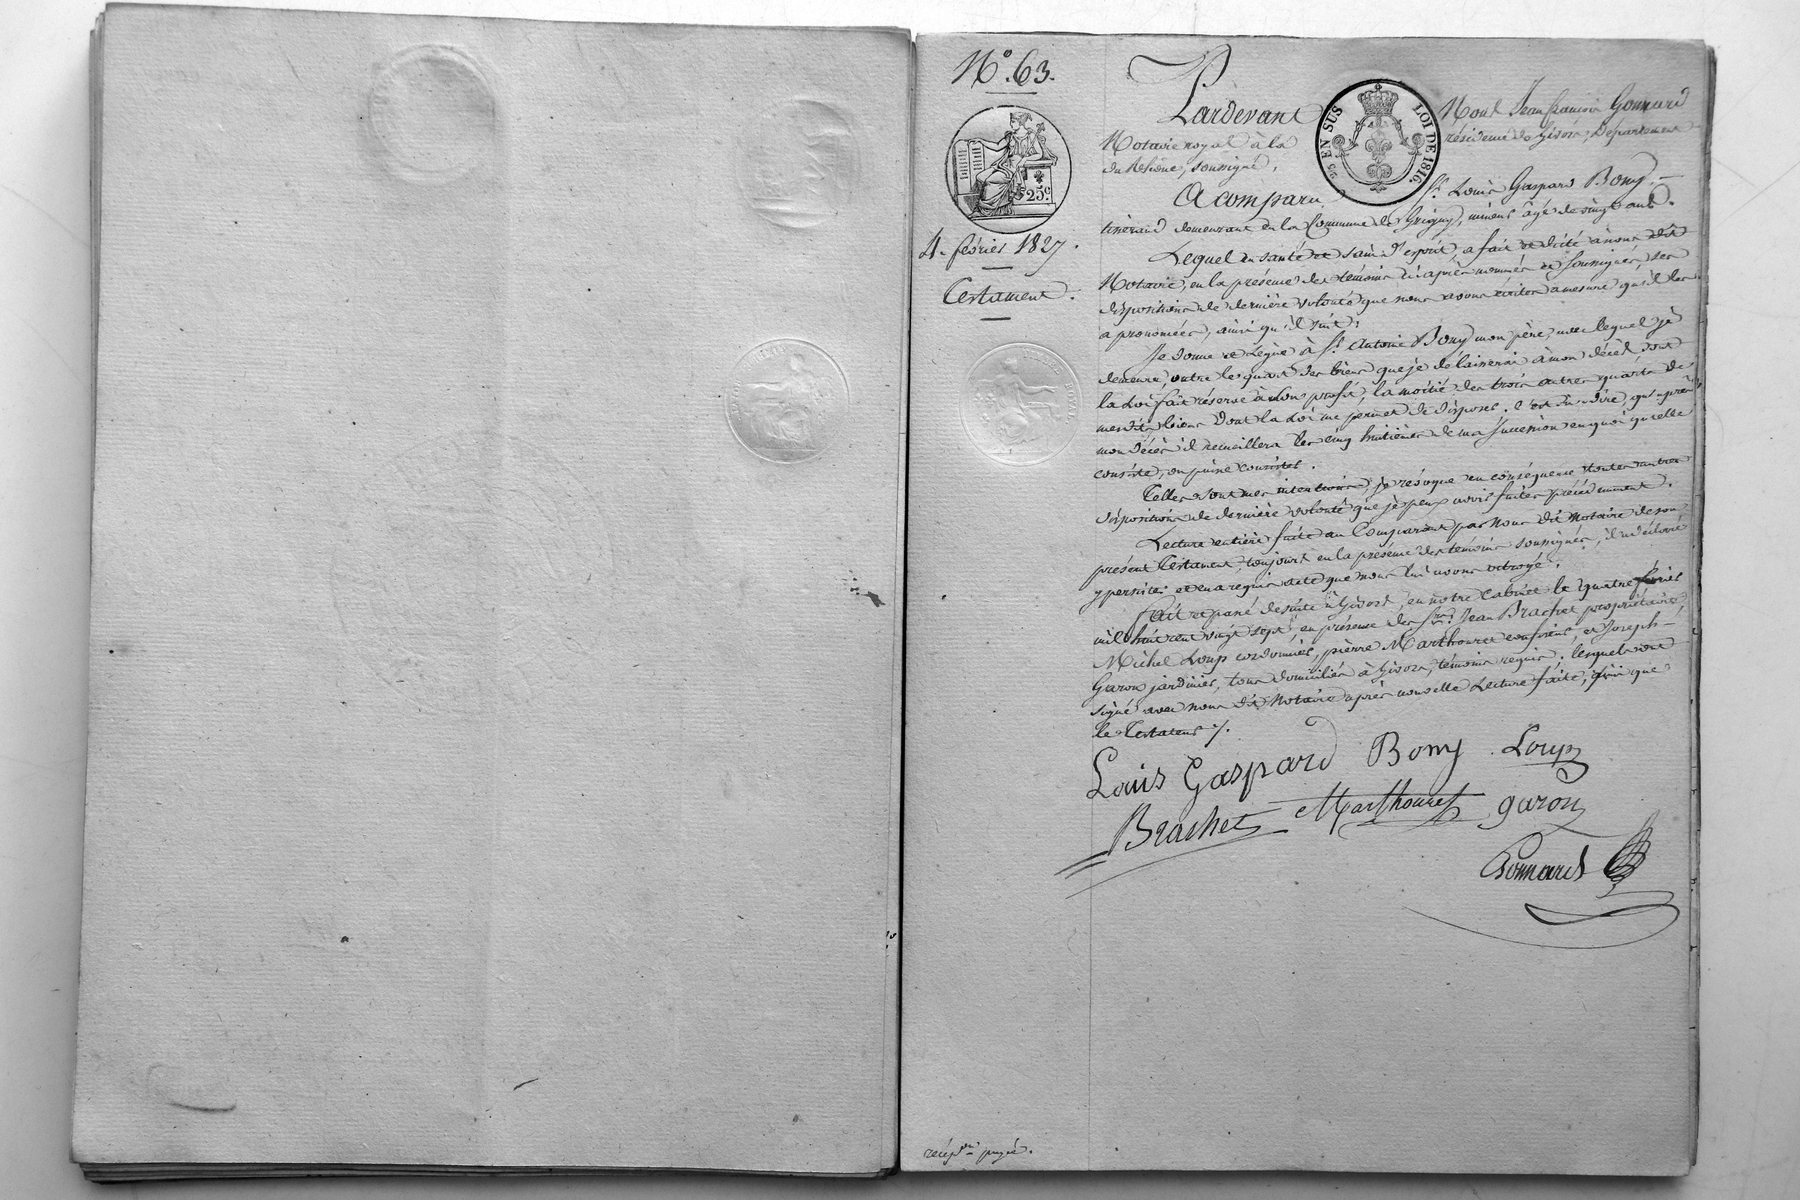 N.º 63.
25.c
4. février 1827.
Testament.
Pardevant Mons.r Jean françois Gonnard
25 EN SUS LOI DE 1816.
Notaire royal à la résidence de Givors, Département
du Rhône, soussigné,
A comparu S.r Louis Gaspard Bony
demeurant en la Commune de Grigny, mineur âgé de vingt ans.
Lequel en santé et sain d'esprit, a fait et dicté à nous dit
Notaire, en la présence des témoins ci après nommés et soussignés, ses
dispositions de dernière volonté que nous avons écrites a mesure qu'il les
a prononcées, ainsi qu'il suit:
Je donne et Lègue à S.r Antoine Bony mon père, avec lequel je
demeure, outre le quart des biens que je délaisserai à mon décès dont
la Loi fait réserve à son profit, la moitié des trois autres quarts de
mes dits biens dont la Loi me permet de disposer. c'est à dire, qu'après
mon décès il recueillera les cinq huitièmes de ma succession en quoi qu'elle
consiste, ou puisse consister.
Telles sont mes intentions, je révoque en conséquence toutes autres
dispositions de dernière volonté que je peux avoir faites précédemment.
Lecture entière faite au Comparant par Nous dit Notaire de son
présent Testament, toujours en la présence des témoins soussignés, il a déclaré
y persister et en a requis acte que nous lui avons octroyé.
fait et passé de suite à Givors, en notre Cabinet le quatre février
mil huit cent vingt sept, en présence des S.rs Jean Brachet propriétaire,
Michel Loup cordonnier, pierre Marthouret et Joseph
Garon jardinier, tous domiciliés à Givors, témoins requis, lesquels ont
signé avec nous dit Notaire après nouvelle Lecture faite, ainsi que
le Testateur ./.
Louis Gaspard Bony Loup
Brachet Marthouret garon
Gonnard
payé.